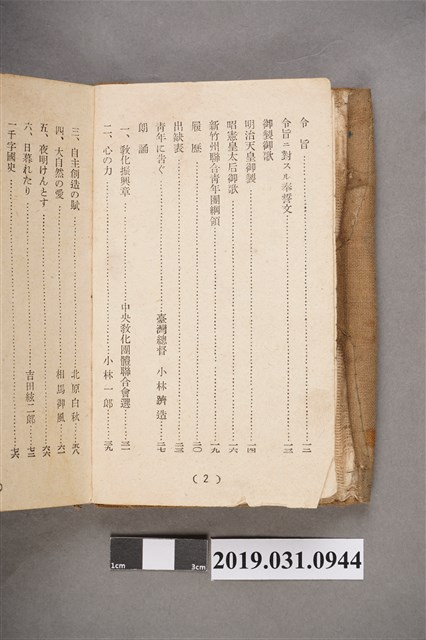 令旨……一二
令旨ニ對スル奉誓文……一三
御製御歌
明治天皇御製……一四
昭憲皇太后御歌……一六
新竹州聯合靑年團綱領……一九
履歷……二〇
出缺表……二三
靑年に告ぐ……臺灣總督 小林躋造……二七
朗誦
一、敎化振興章……中央敎化團體聯合會選……三一
二、心の力……小林一郎……三九
三、自主創造の賦……北原白秋……五八
四、大自然の愛……相馬御風……六一
五、夜明けんとす……六六
六、日暮れたり……吉田絃二郎……七三
一千字國史……七六
(2)
1cm 3cm
2019.031.0944